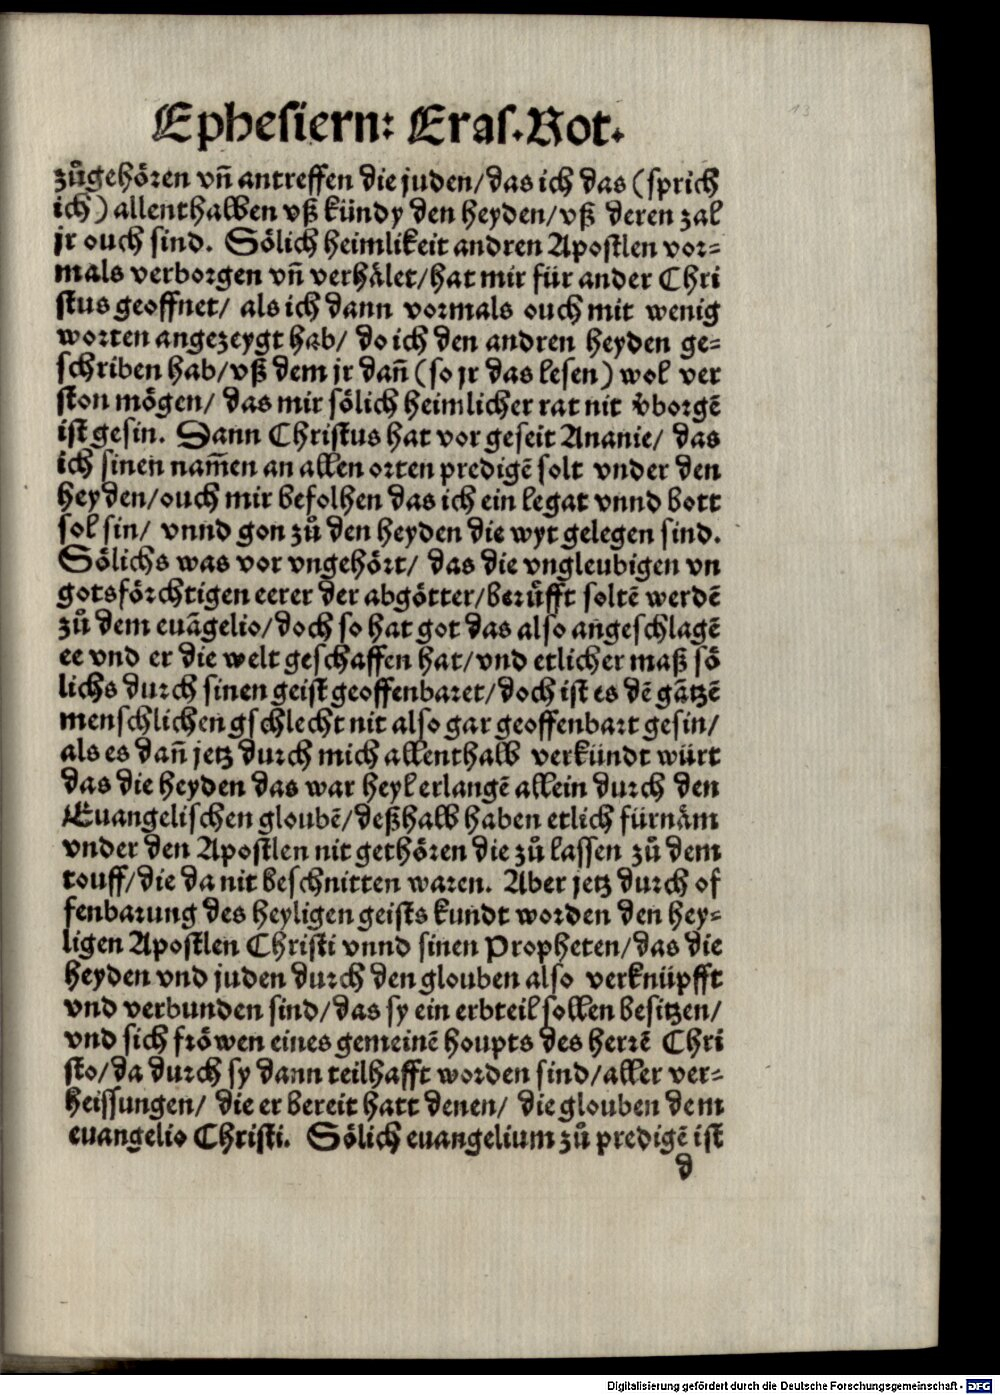 Ephesiern: Eras. Rot.
13
zůgehören vñ antreffen die juden/das ich das (sprich
ich) allenthalben vß kündy den heyden/vß deren zal
jr ouch sind. Sölich heimlikeit andren Apostlen vor⸗
mals verborgen vñ verhälet/hat mir für ander Chri
stus geoffnet/ als ich dann vormals ouch mit wenig
worten angezeygt hab/ do ich den andren heyden ge⸗
schriben hab/vß dem jr dañ (so jr das lesen) wol ver
ston mögen/ das mir sölich heimlicher rat nit v̓borgē
ist gesin. Dann Christus hat vor geseit Ananie/ das
ich sinen nam̄en an allen orten predigē solt vnder den
heyden/ouch mir befolhen das ich ein legat vnnd bott
sol sin/ vnnd gon zů den heyden die wyt gelegen sind.
Sölichs was vor vngehört/ das die vngleubigen vn
gotsförchtigen eerer der abgötter/berůfft soltē werdē
zů dem euāgelio/doch so hat got das also angeschlagē
ee vnd er die welt geschaffen hat/vnd etlicher maß sö
lichs durch sinen geist geoffenbaret/doch ist es dē gātzē
menschlichen gschlecht nit also gar geoffenbart gesin/
als es dañ jetz durch mich allenthalb verkündt würt
das die heyden das war heyl erlangē allein durch den
Euangelischen gloubē/deßhalb haben etlich fürnäm
vnder den Apostlen nit gethören die zů lassen zů dem
touff/die da nit beschnitten waren. Aber jetz durch of
fenbarung des heyligen geists kundt worden den hey⸗
ligen Apostlen Christi vnnd sinen Propheten/das die
heyden vnd juden durch den glouben also verknüpfft
vnd verbunden sind/das sy ein erbteil sollen besitzen/
vnd sich fröwen eines gemeinē houpts des herrē Chri
sto/da durch sy dann teilhafft worden sind/aller ver⸗
heissungen/ die er bereit hatt denen/ die glouben dem
euangelio Christi. Sölich euangelium zů predigē ist
d
Digitalisierung gefördert durch die Deutsche Forschungsgemeinschaft - DFG